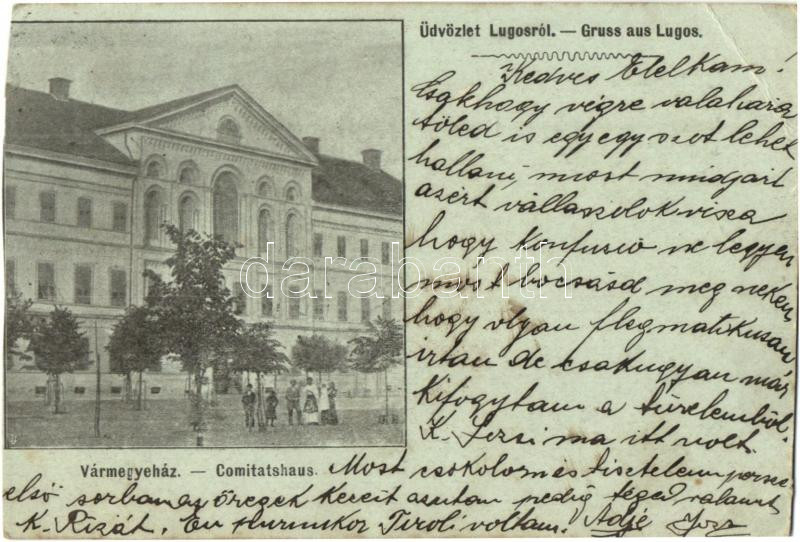 Üdvözlet Lugosról. — Gruss aus Lugos.
Kedves Etelkam!
Csakhogy végre valahára
tőled is egy egy szot lehet
hallani, most mindjárt
azért válaszolok vissza
hogy konfuzió ne legyen
most bocsásd meg nekem
hogy olyan flegmatikusan
irtam de csakugyan már
kifogytam a türelemböl.
K. ma itt volt.
darabanth.com
Vármegyeház. — Comitatshaus.
Most csokolom és tisztelem persze
első sorban az öregek kezeit azutan pedig téged valamint
K. Rizát. Én Tiroli voltam. Adjé